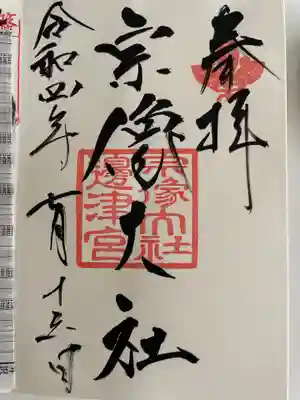 奉拝
宗像大社
宗像大社
邊津宮
令和四年 月 十 日